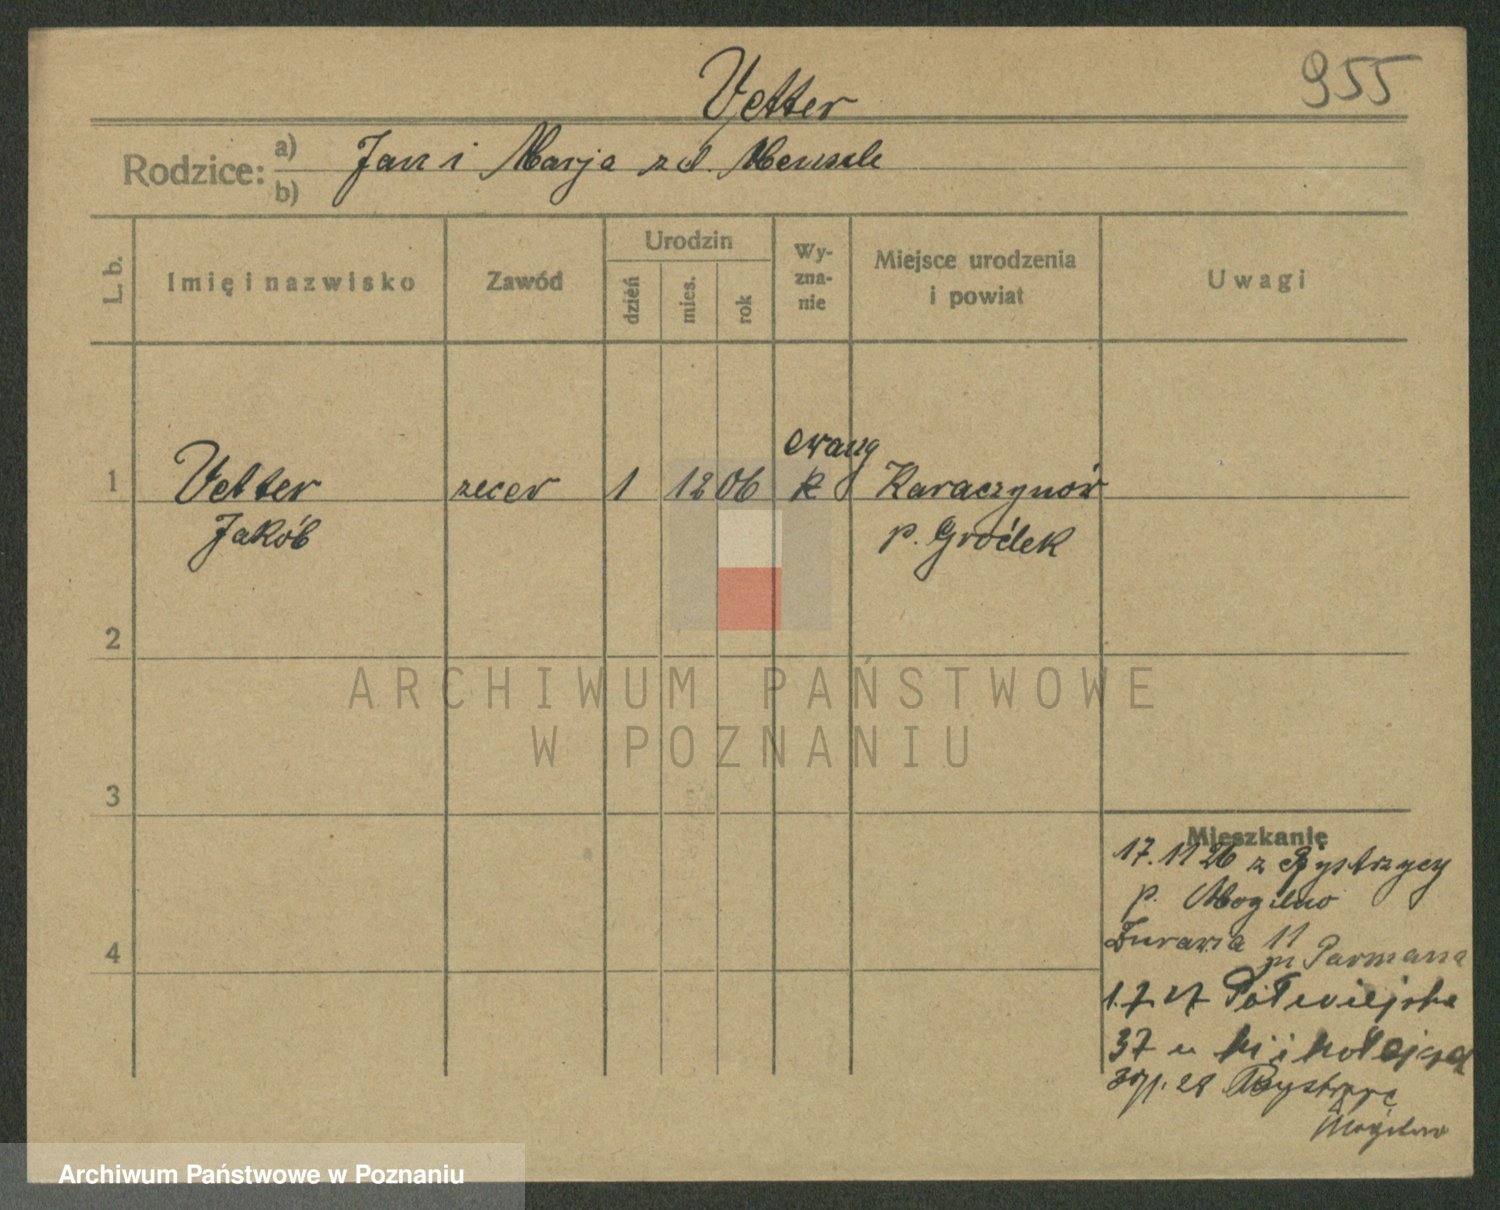 955
Vetter
Rodzice: a) b)
Jan i Marja z d.
L. b.
Imię i nazwisko
Zawód
Urodzin
dzień
mies.
rok
Wy-
zna-
nie
Miejsce urodzenia
i powiat
Uwagi
1
Vetter
Jakób
zecer
1
12
06
ewang
Karaczynów
p. Gródek
2
3
4
Mieszkanie
17.11 26 z Bystrzycy
p. Mogilno
Żurawia 11
1.7 27 Półwiejska
37 u
28 Bystrzyc
Mogilno
ARCHIWUM PAŃSTWOWE
W POZNANIU
Archiwum Państwowe w Poznaniu